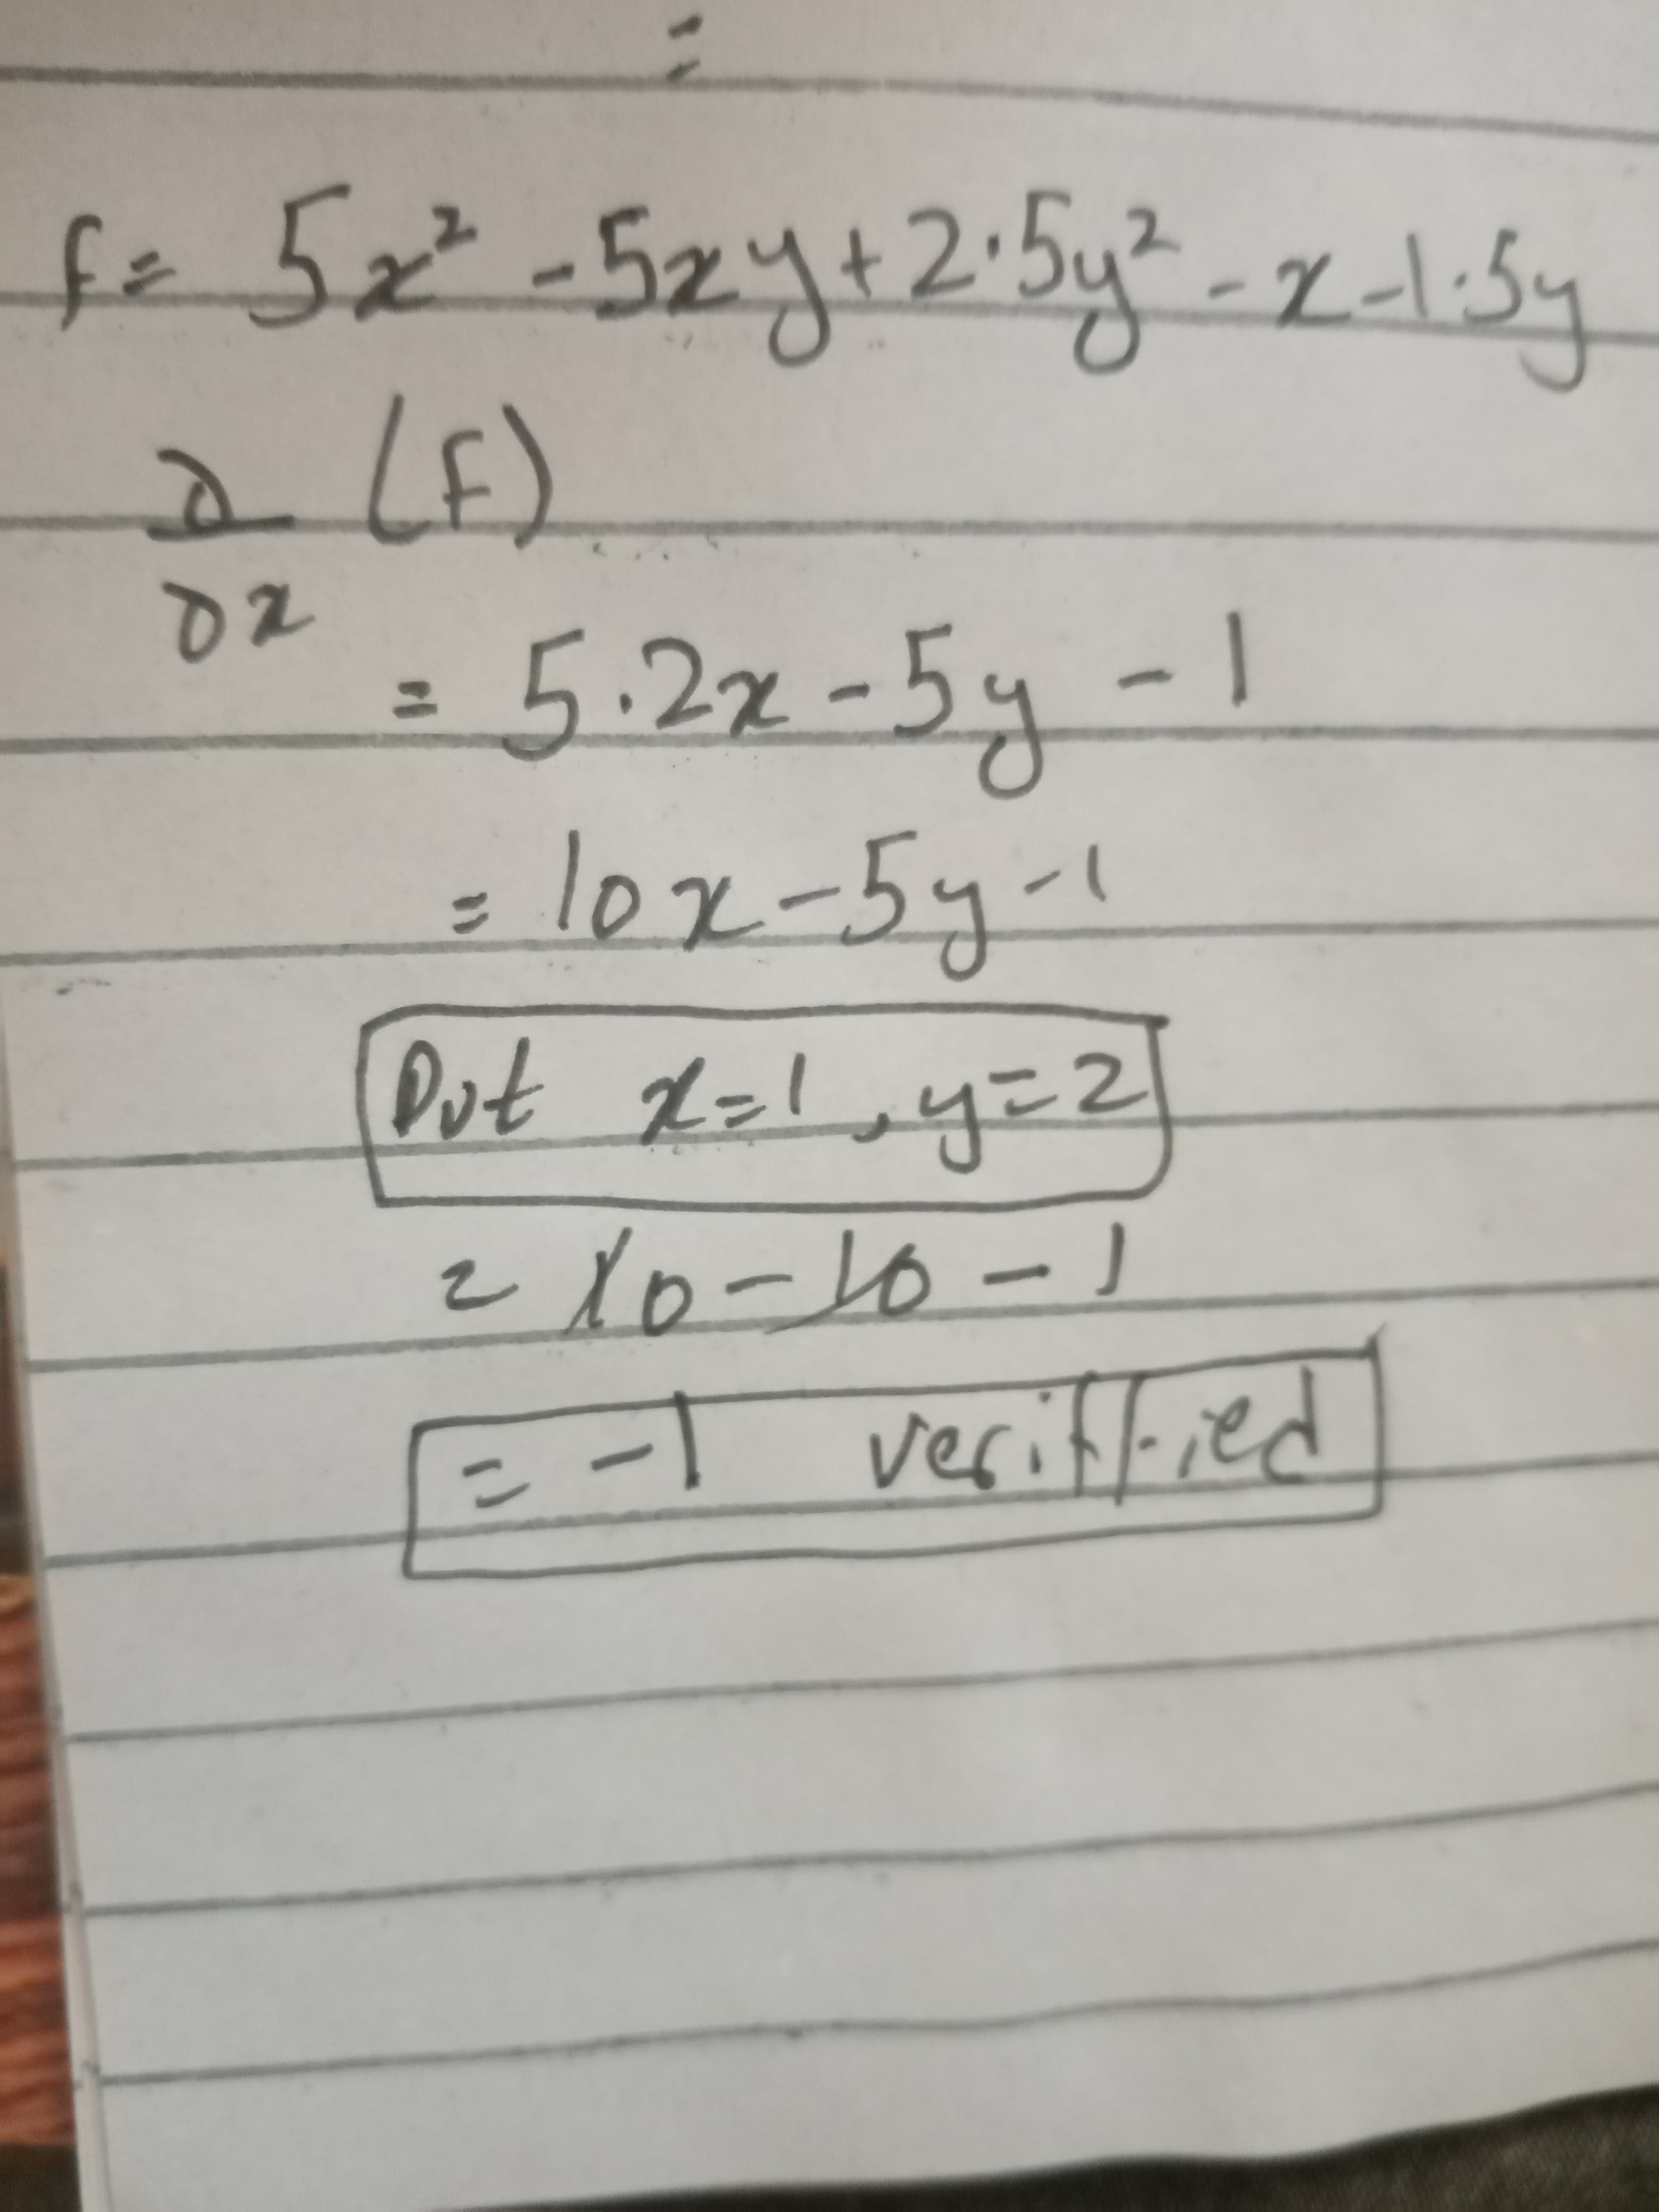 =
f = 5x² - 5xy + 2.5y² - x - 1.5y
∂ (F)
∂x
= 5.2x - 5y - 1
= 10x - 5y - 1
Put x=1, y=2
= 10 - 10 - 1
= -1 veriffied